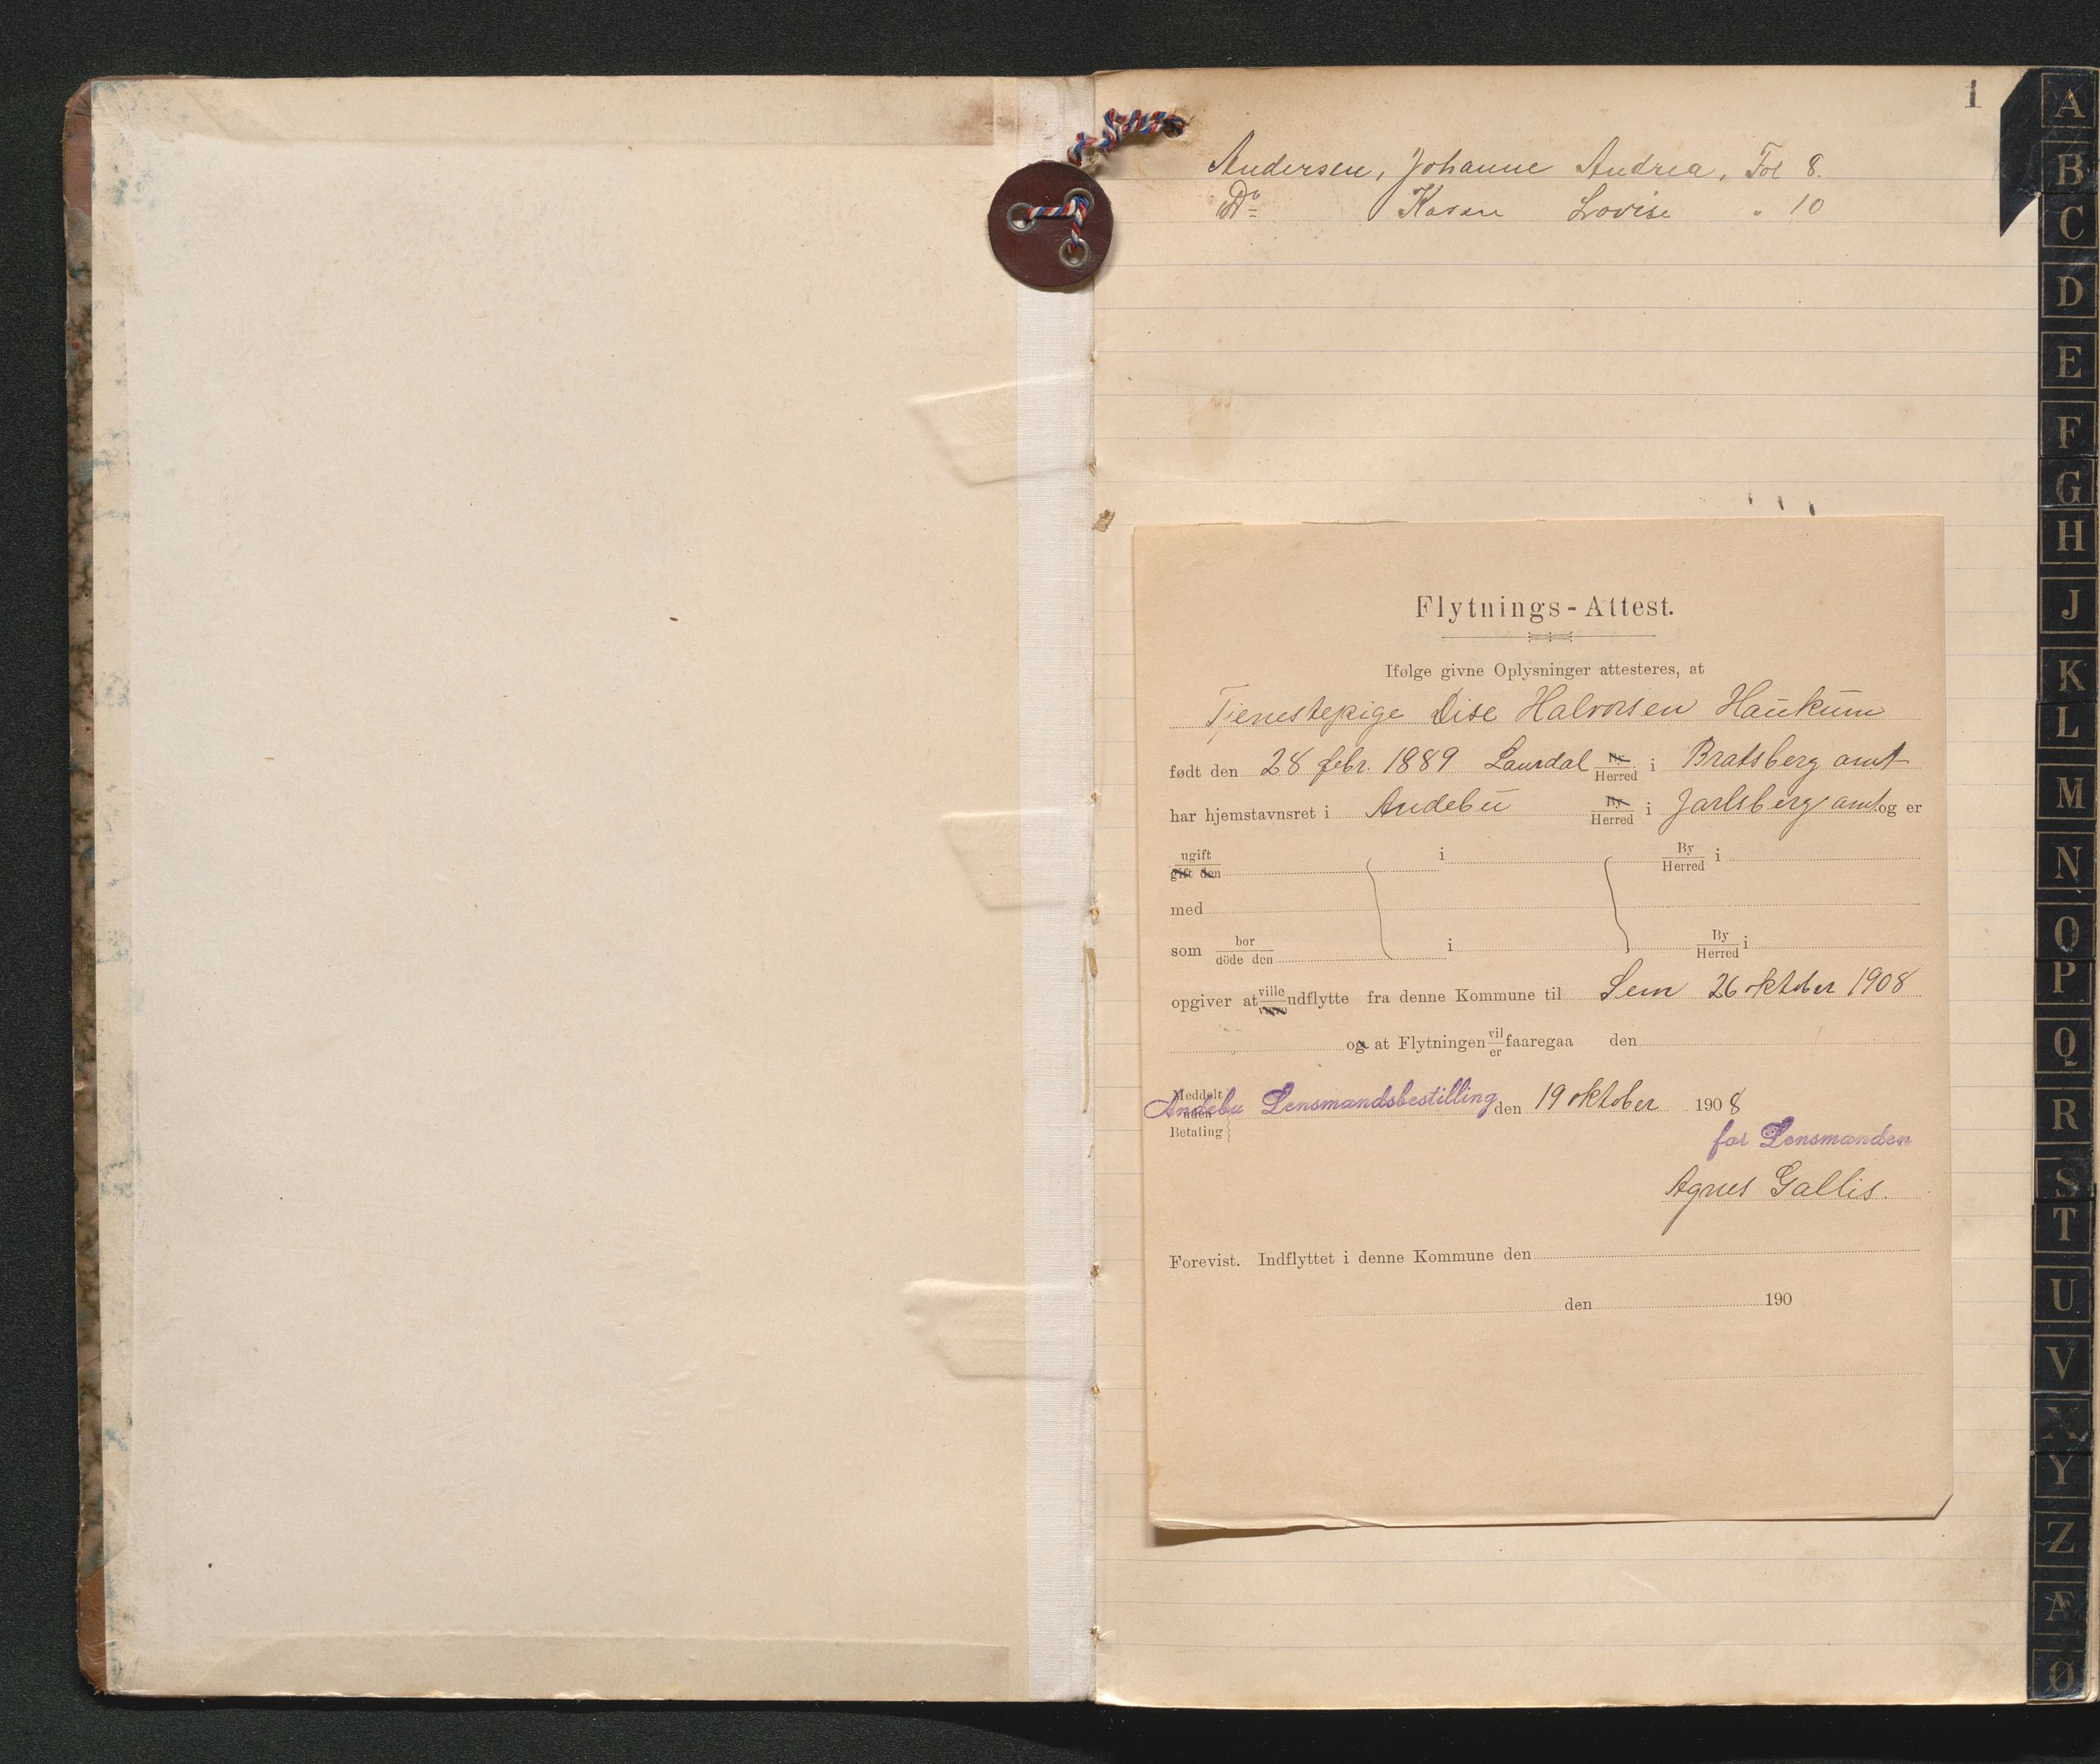 1
Andersen, Johanne Andrea, Fol 8.
Do Karen Lovise " 10
Flytnings-Attest.
Ifølge givne Oplysninger attesteres, at
Tjenestepige Dise Halvorsen Haukum
født den 28 febr. 1889 Laurdal By Herred i Bratsberg amt
har hjemstavnsret i Andebu By Herred i Jarlsberg amt og er
ugift gift den i By Herred i
med
som bor döde den i By Herred i
opgiver at ville udflytte fra denne Kommune til Sem 26 oktober 1908
og at Flytningen vil er faaregaa den
Meddelt uden Betaling
Andebu Lensmandsbestilling den 19 oktober 1908
for Lensmanden
Agnes Gallis.
Forevist. Indflyttet i denne Kommune den
den 190
A
B
C
D
E
F
G
H
J
K
L
M
N
O
P
Q
R
S
T
U
V
X
Y
Z
Æ
Ø